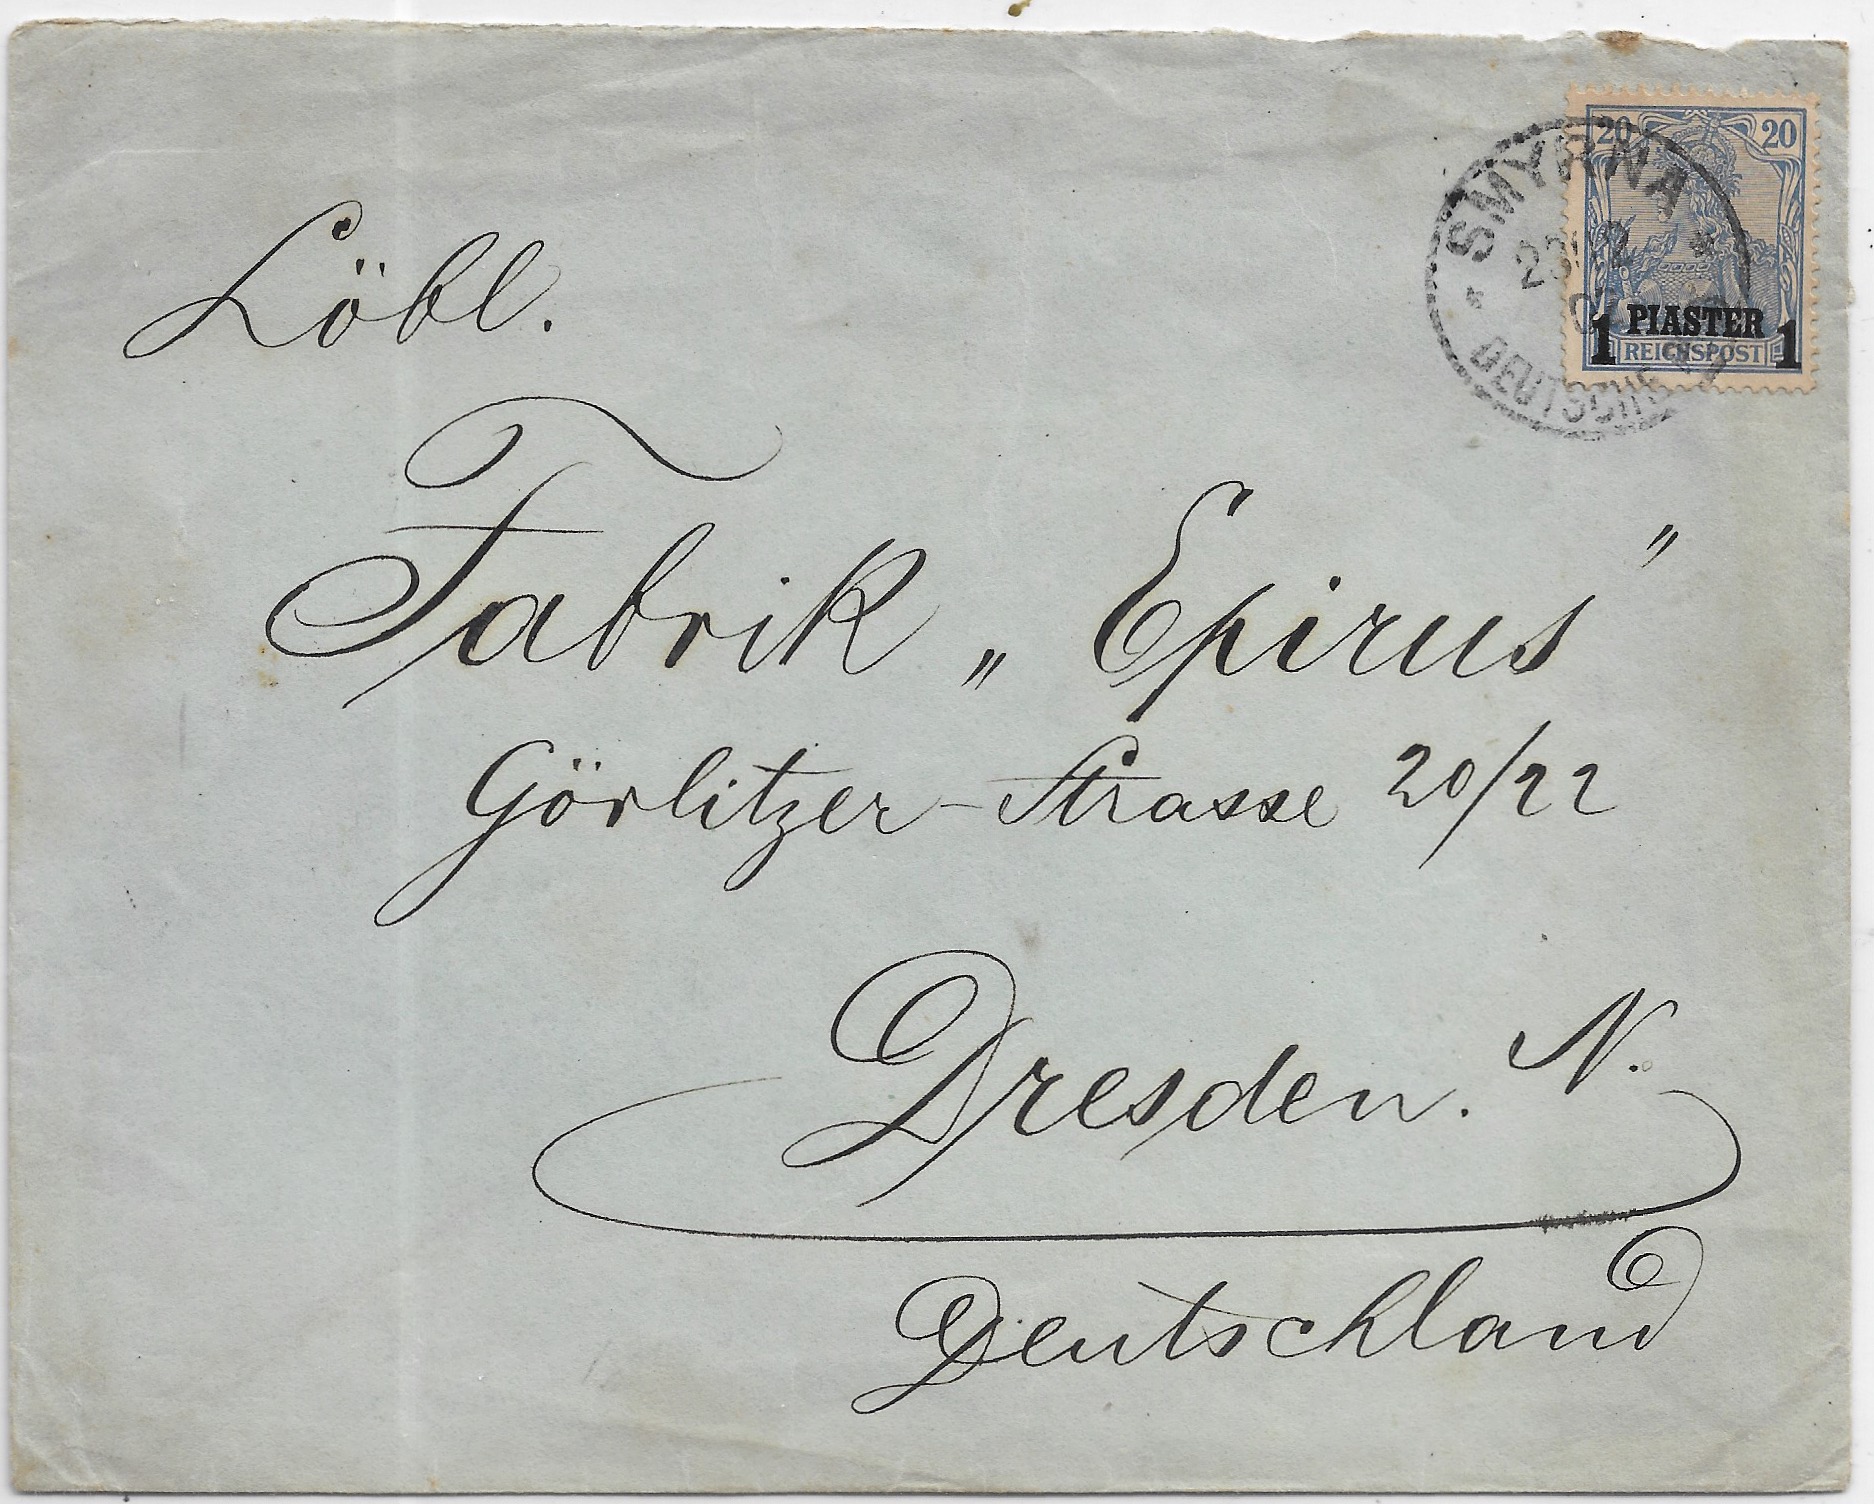 20 20
SMYRNA
1 PIASTER 1
REICHSPOST
DEUTSCHE
Löbl.
Fabrik „Epirus"
Görlitzer-Strasse 20/22
Dresden. N.
Deutschland